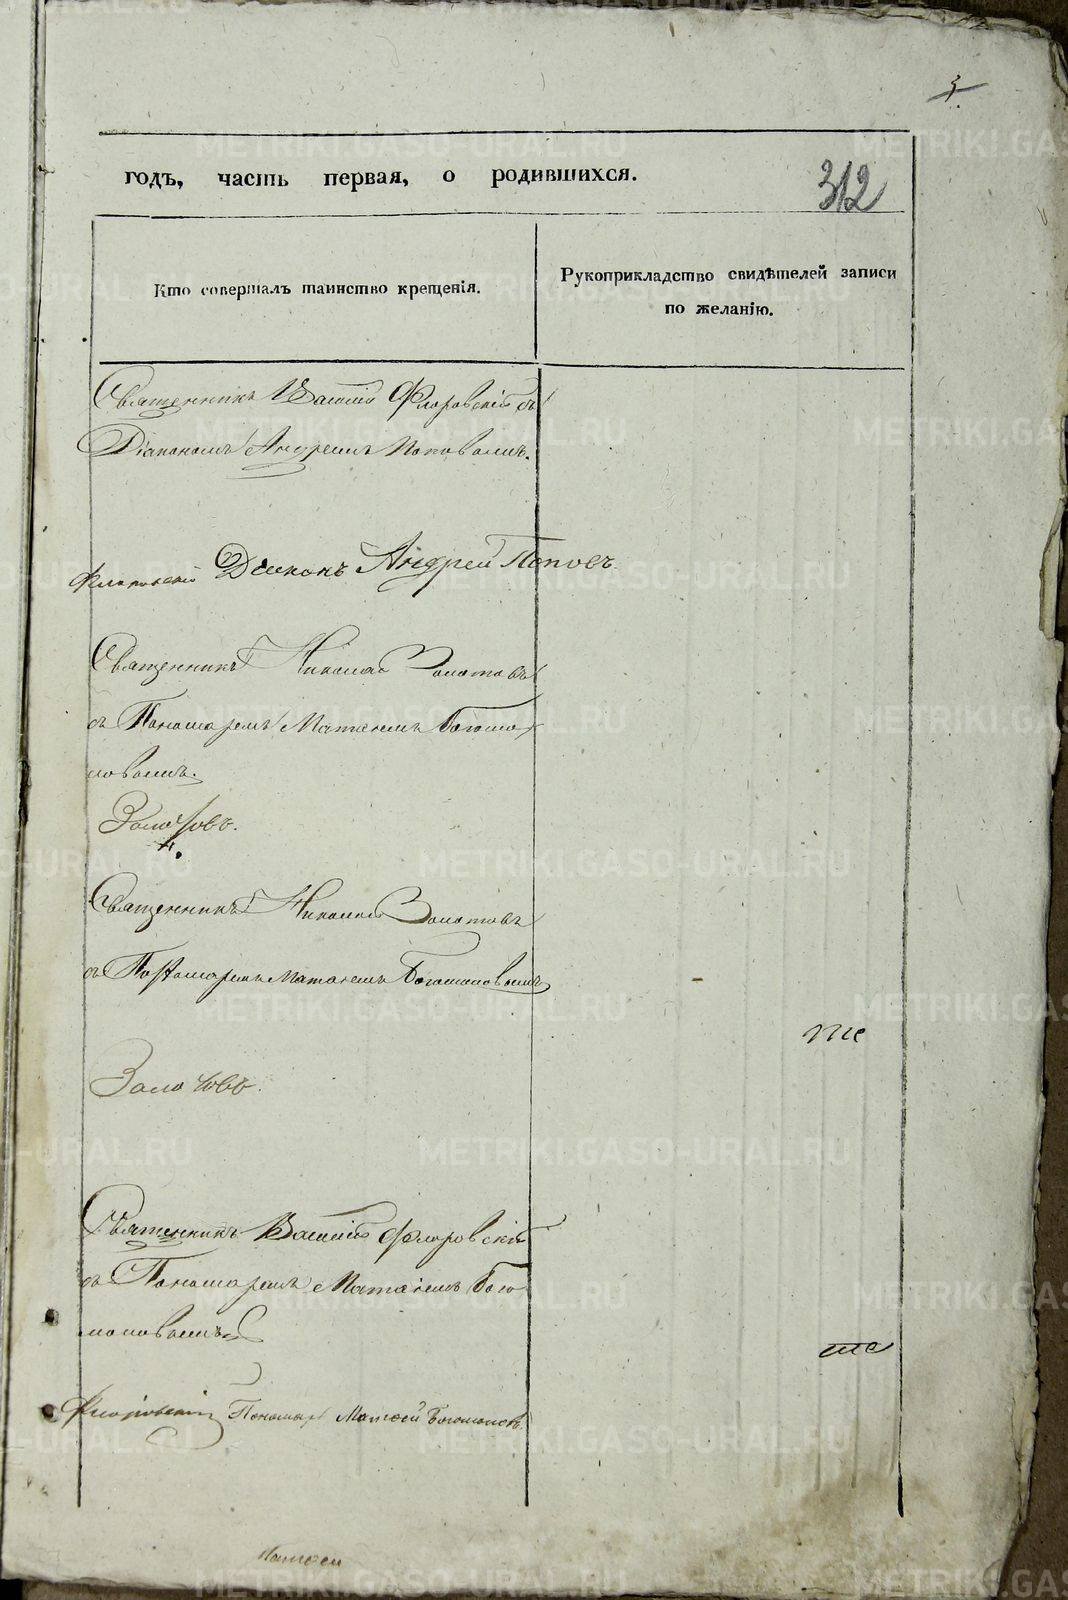 3
годъ, часть первая, о родившихся.
312
Кто совершалъ таинство крещенія.
Рукоприкладство свидѣтелей записи
по желанію.
Священникъ Василій Флоровскій съ
Діакономъ Андреемъ Поповымъ.
Флоровскій Діаконъ Андрей Поповъ.
Священникъ Николай Золотовъ
съ Пономаремъ Матѳеемъ Богомо-
ловымъ.
Золотовъ.
Священникъ Николай Золотовъ
съ Пономаремъ Матѳеемъ Богомоловымъ
Золотовъ.
Священникъ Василій Флоровскій
съ Пономаремъ Матѳеемъ Бого-
моловымъ
Флоровскій Пономарь Матѳей Богомоловъ.
METRIKI.GASO-URAL.RU